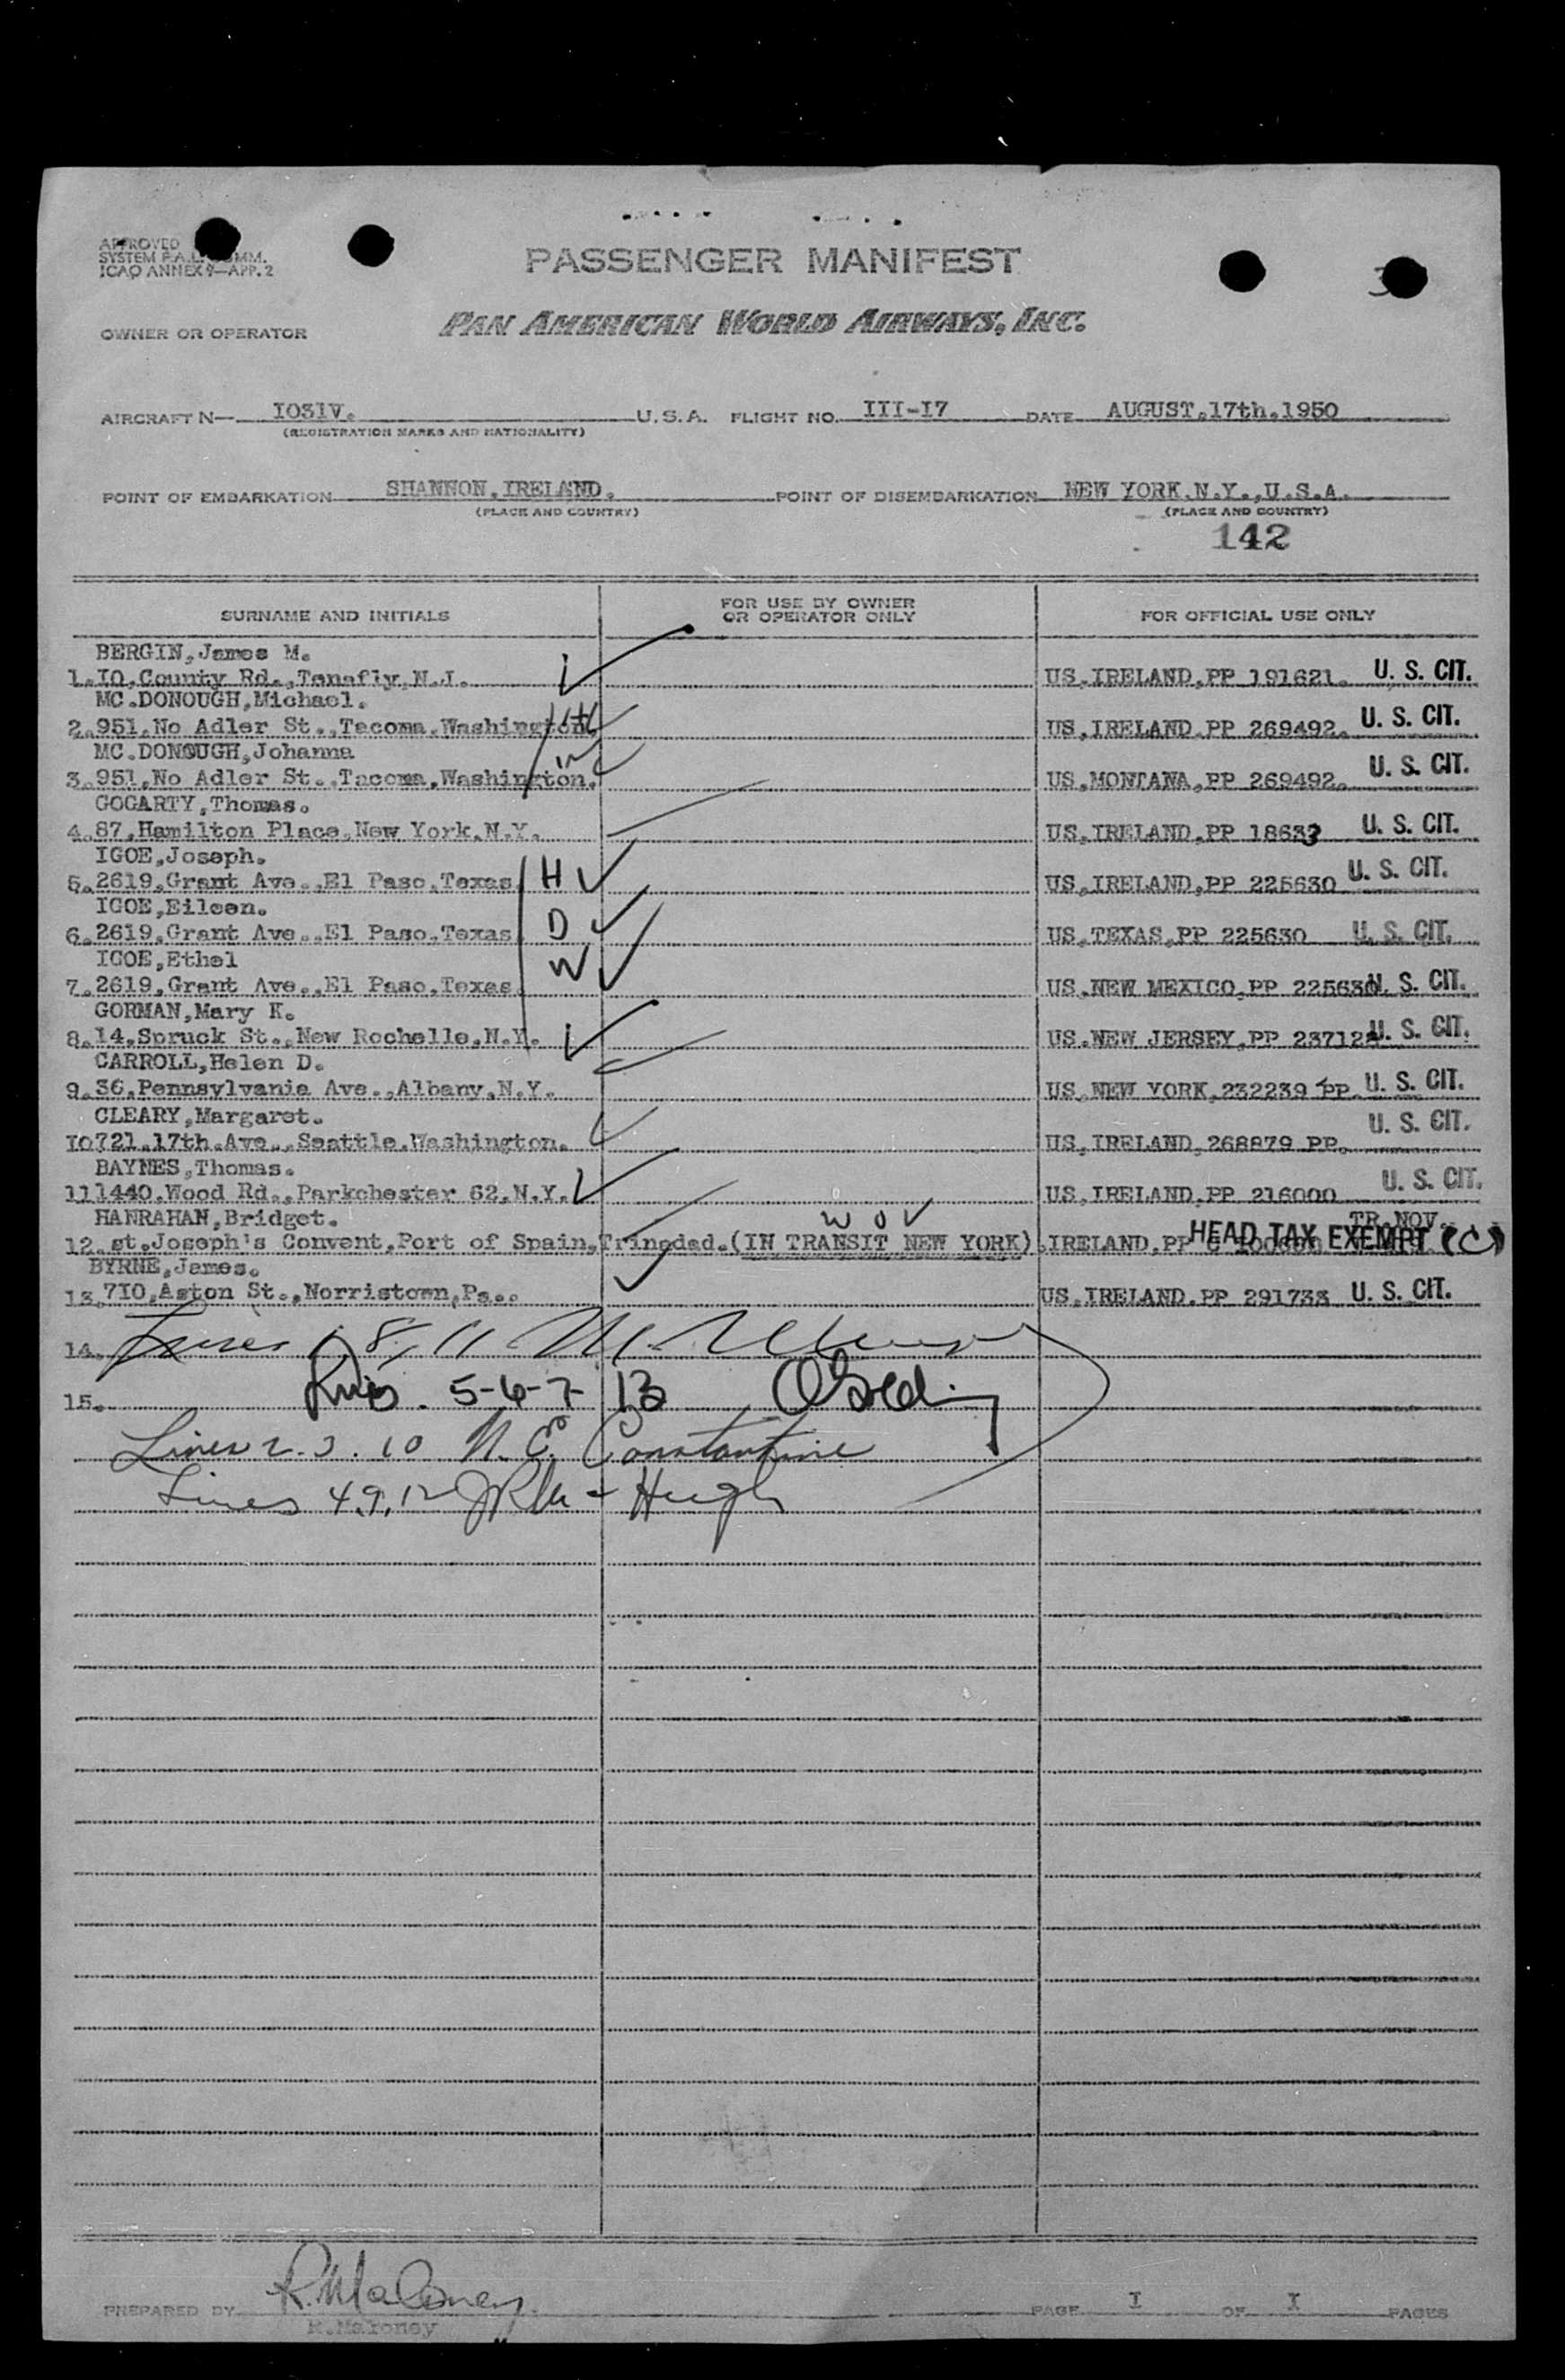 APPROVED
SYSTEM P.A.L. COMM.
ICAO ANNEX 9—APP. 2
PASSENGER MANIFEST
OWNER OR OPERATOR PAN AMERICAN WORLD AIRWAYS, INC.
AIRCRAFT N— I031V. U.S.A. FLIGHT NO. III-I7 DATE AUGUST.17th.1950
(REGISTRATION MARKS AND NATIONALITY)
POINT OF EMBARKATION SHANNON.IRELAND. POINT OF DISEMBARKATION NEW YORK.N.Y.,U.S.A.
(PLACE AND COUNTRY) (PLACE AND COUNTRY)
142
SURNAME AND INITIALS FOR USE BY OWNER OR OPERATOR ONLY FOR OFFICIAL USE ONLY
BERGIN,James M.
1.I0,County Rd.,Tenafly,N.J. US.IRELAND.PP 191621. U. S. CIT.
MC.DONOUGH,Michael.
2.951.No Adler St.,Tacoma.Washington. US.IRELAND.PP 269492. U. S. CIT.
MC.DONOUGH,Johanna
3.951.No Adler St.,Tacoma.Washington. US.MONTANA.PP 269492. U. S. CIT.
GOGARTY,Thomas.
4.87.Hamilton Place,New York.N.Y. US.IRELAND.PP 18633 U. S. CIT.
IGOE,Joseph.
5.2619.Grant Ave.,El Paso.Texas H US.IRELAND.PP 225630 U. S. CIT.
IGOE,Eileen.
6.2619.Grant Ave.,El Paso.Texas D US.TEXAS.PP 225630 U. S. CIT.
IGOE,Ethel
7.2619.Grant Ave.,El Paso.Texas W US.NEW MEXICO.PP 225630 U. S. CIT.
GORMAN,Mary K.
8.14.Spruck St.,New Rochelle,N.Y. US.NEW JERSEY.PP 23712 U. S. CIT.
CARROLL,Helen D.
9.36.Pennsylvania Ave.,Albany.N.Y. US.NEW YORK.232239 PP. U. S. CIT.
CLEARY,Margaret.
10721.17th.Ave.,Seattle.Washington. US.IRELAND.268879 PP. U. S. CIT.
BAYNES,Thomas.
111440.Wood Rd.,Parkchester 62.N.Y. US.IRELAND.PP 216000 U. S. CIT.
HANRAHAN,Bridget. W O V TR.NOV.
12.st.Joseph's Convent.Port of Spain.Trinadad.(IN TRANSIT NEW YORK).IRELAND.PP HEAD TAX EXEMPT (C)
BYRNE,James.
13.7I0,Aston St.,Norristown,Pa.. US.IRELAND.PP 291733 U. S. CIT.
14. Lines 1, 8, 11
15. Lines. 5-6-7 13
Lines 2.3.10 N. E. Constantine
Lines 4,9,12 Hugh
R. Maloney
PREPARED BY PAGE I OF I PAGES
R.Maloney